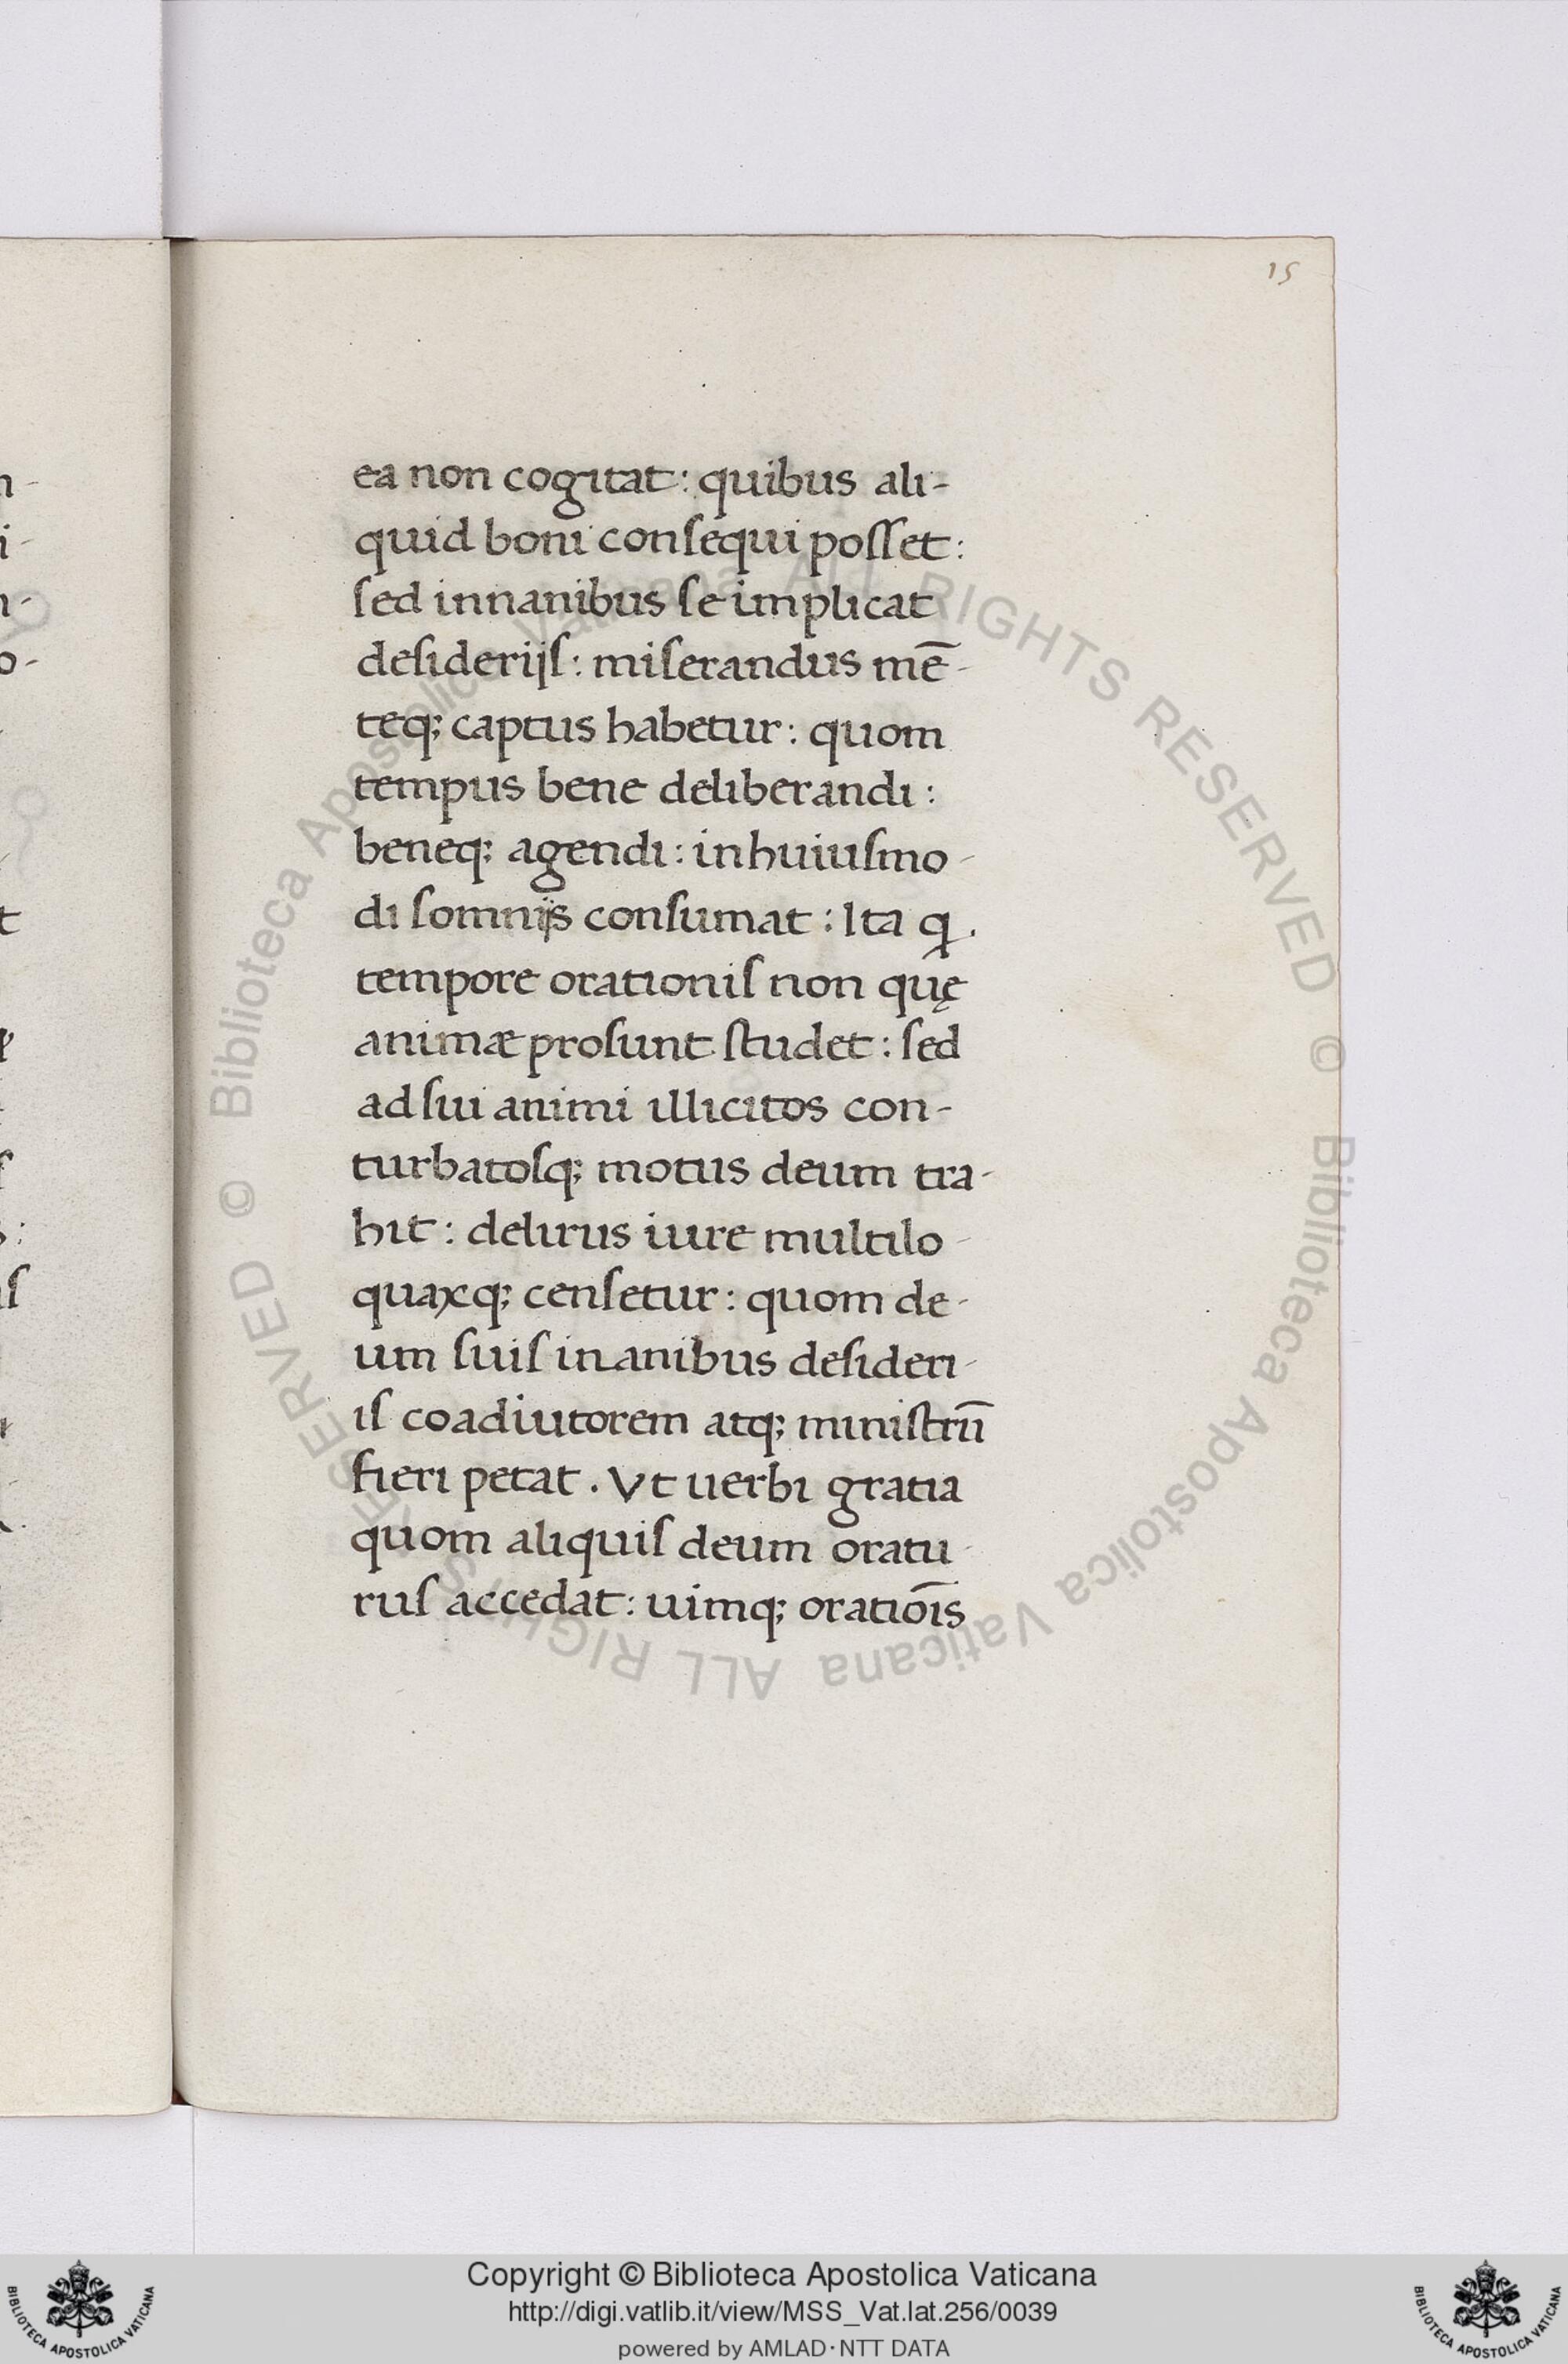 15
ea non cogitat : quibus ali-
quid boni conſequi poſſet :
ſed innanibus ſe implicat
deſiderijſ : miſerandus mē-
teq; captus habetur : quom
tempus bene deliberandi :
beneq; agendi : in huiuſmo-
di ſomnijs conſumat : Ita q .
tempore orationiſ non quę
animæ proſunt ſtudet : ſed
ad ſui animi illicitos con-
turbatoſq; motus deum tra-
hit : delirus iure multilo-
quaxq; cenſetur : quom de-
um ſuiſ inanibus deſideri-
iſ coadiutorem atq; miniſtrū
fieri petat . Vt uerbi gratia
quom aliquiſ deum oratu-
ruſ accedat : uimq; oratiōis
© Biblioteca Apostolica Vaticana ALL RIGHTS RESERVED © Biblioteca Apostolica Vaticana ALL RIGHTS RESERVED
Copyright © Biblioteca Apostolica Vaticana
http://digi.vatlib.it/view/MSS_Vat.lat.256/0039
powered by AMLAD·NTT DATA
BIBLIOTECA APOSTOLICA VATICANA
BIBLIOTECA APOSTOLICA VATICANA